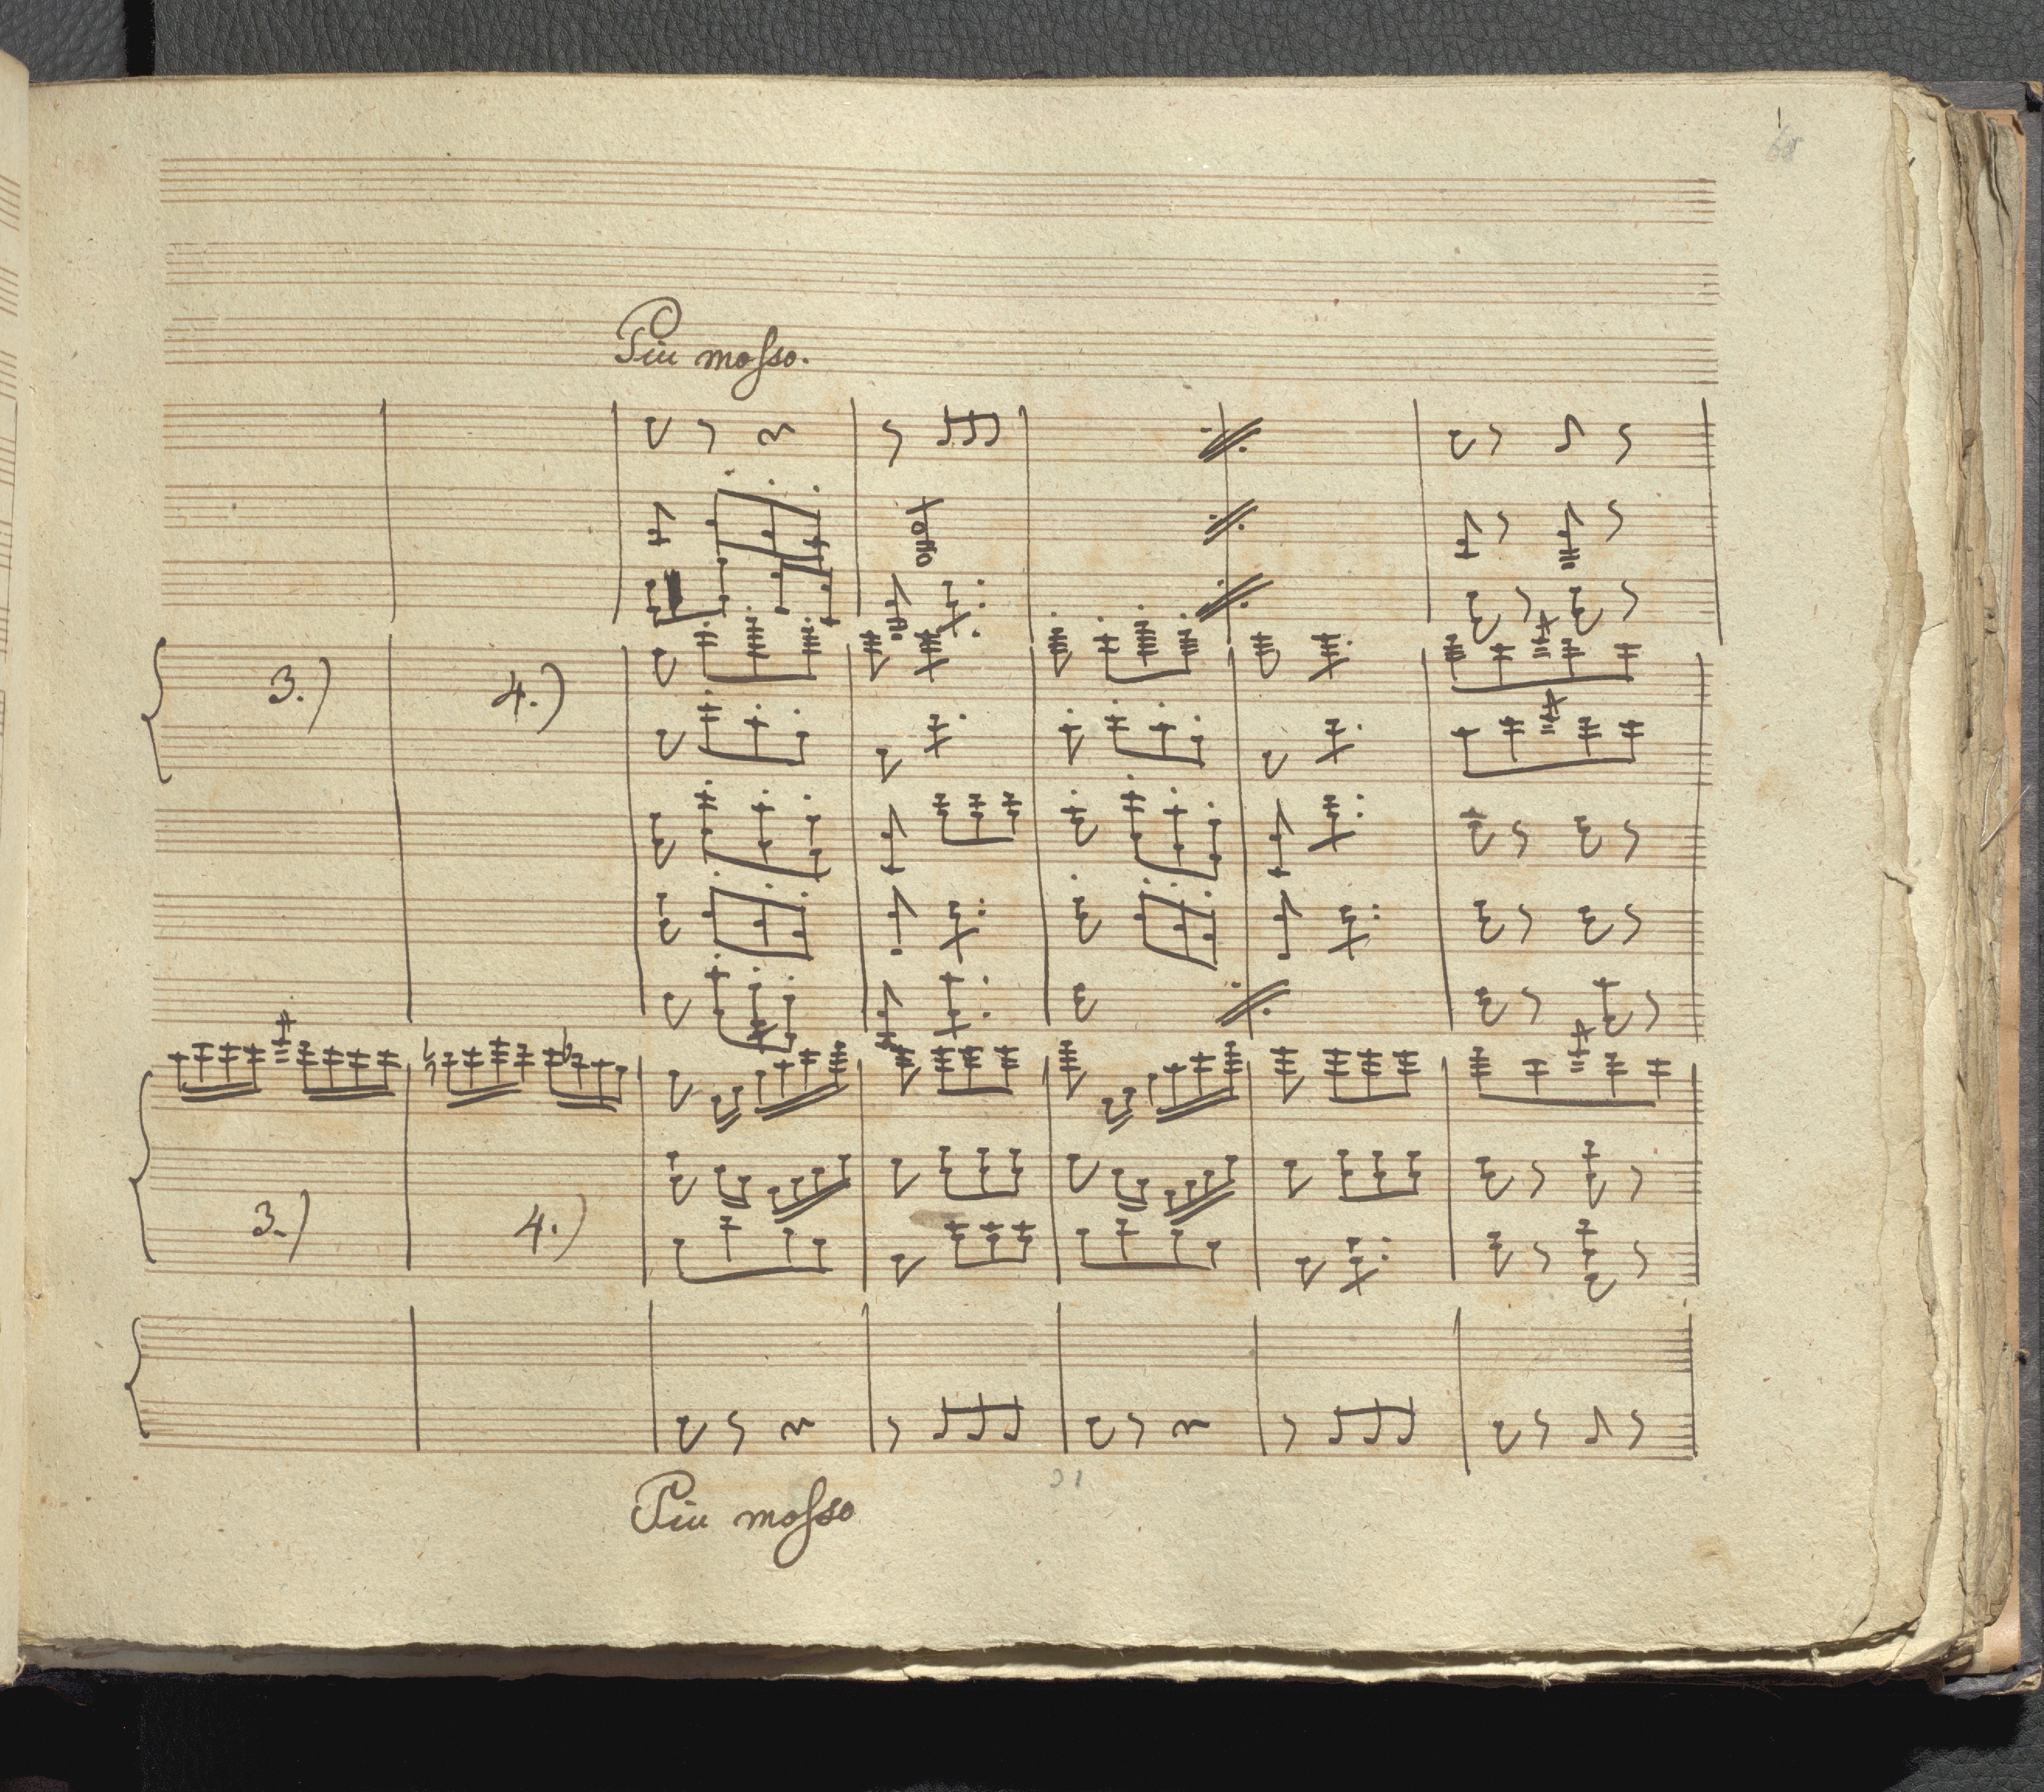 68
Piu mosso.
3.) 4.)
3.) 4.)
31
Piu mosso